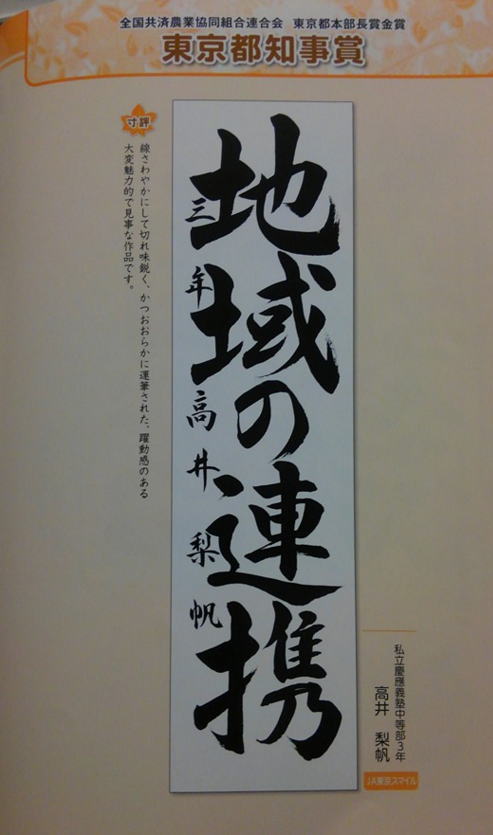 全国共済農業協同組合連合会 東京都本部長賞金賞
東京都知事賞
私立慶應義塾中等部3年
高井 梨帆
JA東京スマイル
地域の連携
三年 高井梨帆
寸評
線さわやかにして切れ味鋭く、かつおおらかに運筆された、躍動感のある
大変魅力的で見事な作品です。